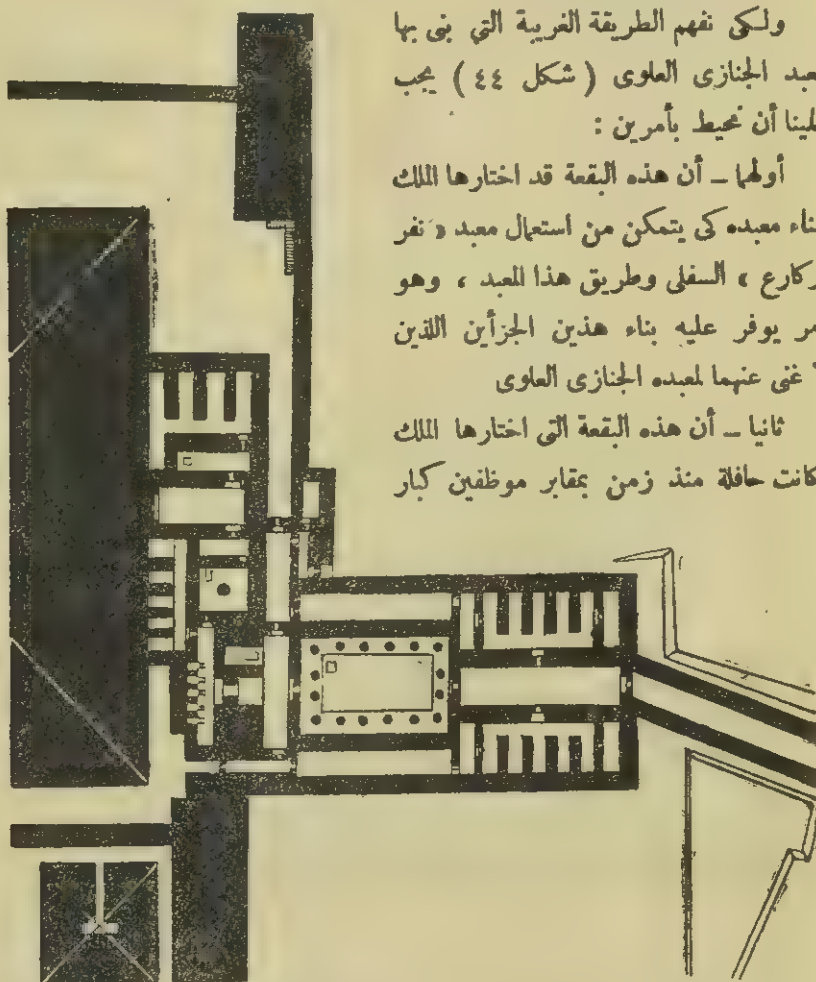 ولكى نفهم الطريقة الغريبة التي بنى بها
عبد الجنازى العلوى ( شكل ٤٤ ) يجب
لينا أن نحيط بأمرين :
أولها ــ أن هذه البقعة قد اختارها الملك
ناء معبده كى يتمكن من استعمال معبد « نفر
ركارع » السفلى وطريق هذا المعبد ، وهو
مر يوفر عليه بناء هذين الجزأين اللذين
غنى عنهما لمعبده الجنازى العلوى
ثانيا ــ أن هذه البقعة التى اختارها الملك
كانت حافلة منذ زمن بمقابر موظفين كبار